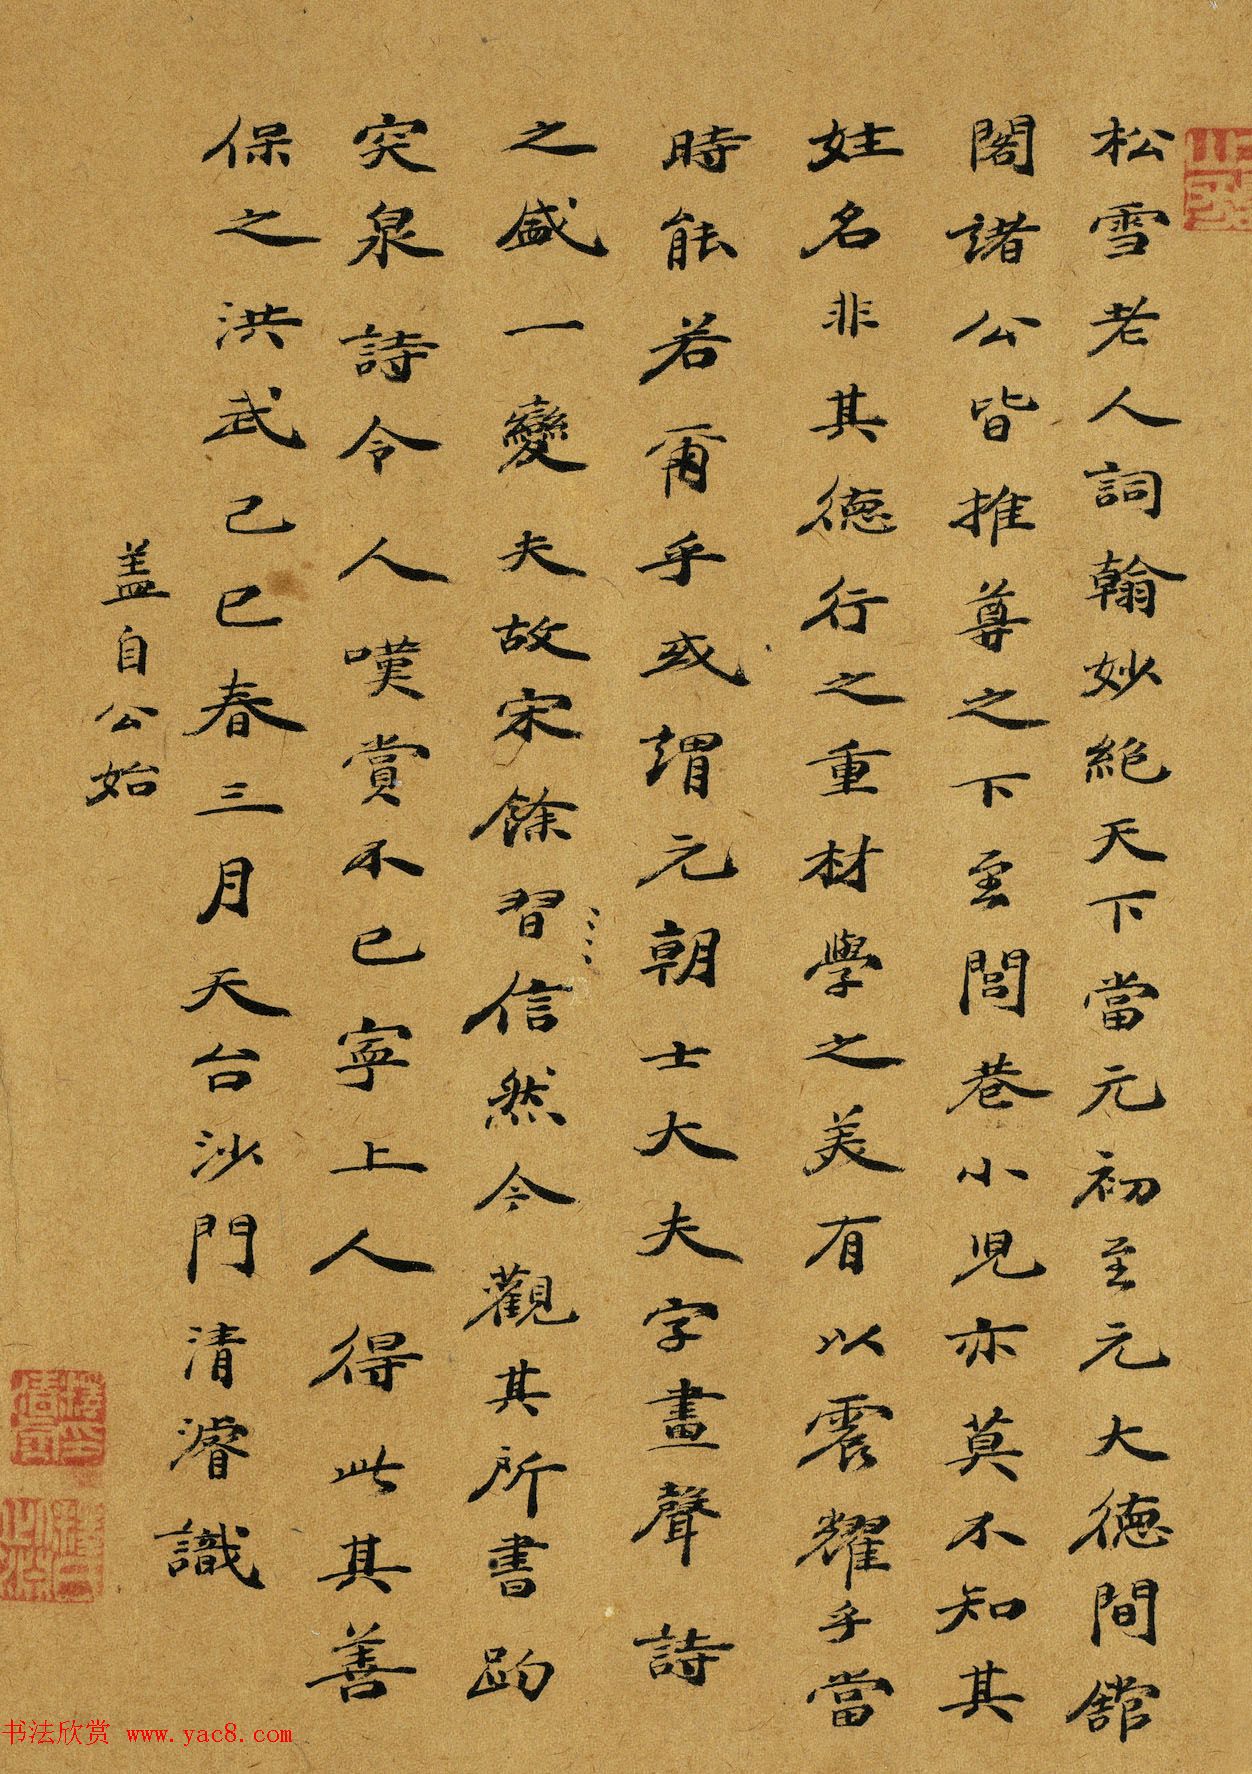 松雪老人詞翰妙絕天下當元初至元大德間舘
閣諸公皆推尊之下至閭巷小児亦莫不知其
姓名非其德行之重材學之美有以震耀乎當
時能若甭乎或謂元朝士大夫字畫聲詩
之盛一變夫故宋餘習信然今觀其所書趵
突泉詩令人嘆賞不已寧上人得此其善
保之洪武己巳春三月天台沙門清濬識
盖自公始
书法欣赏 www.yac8.com